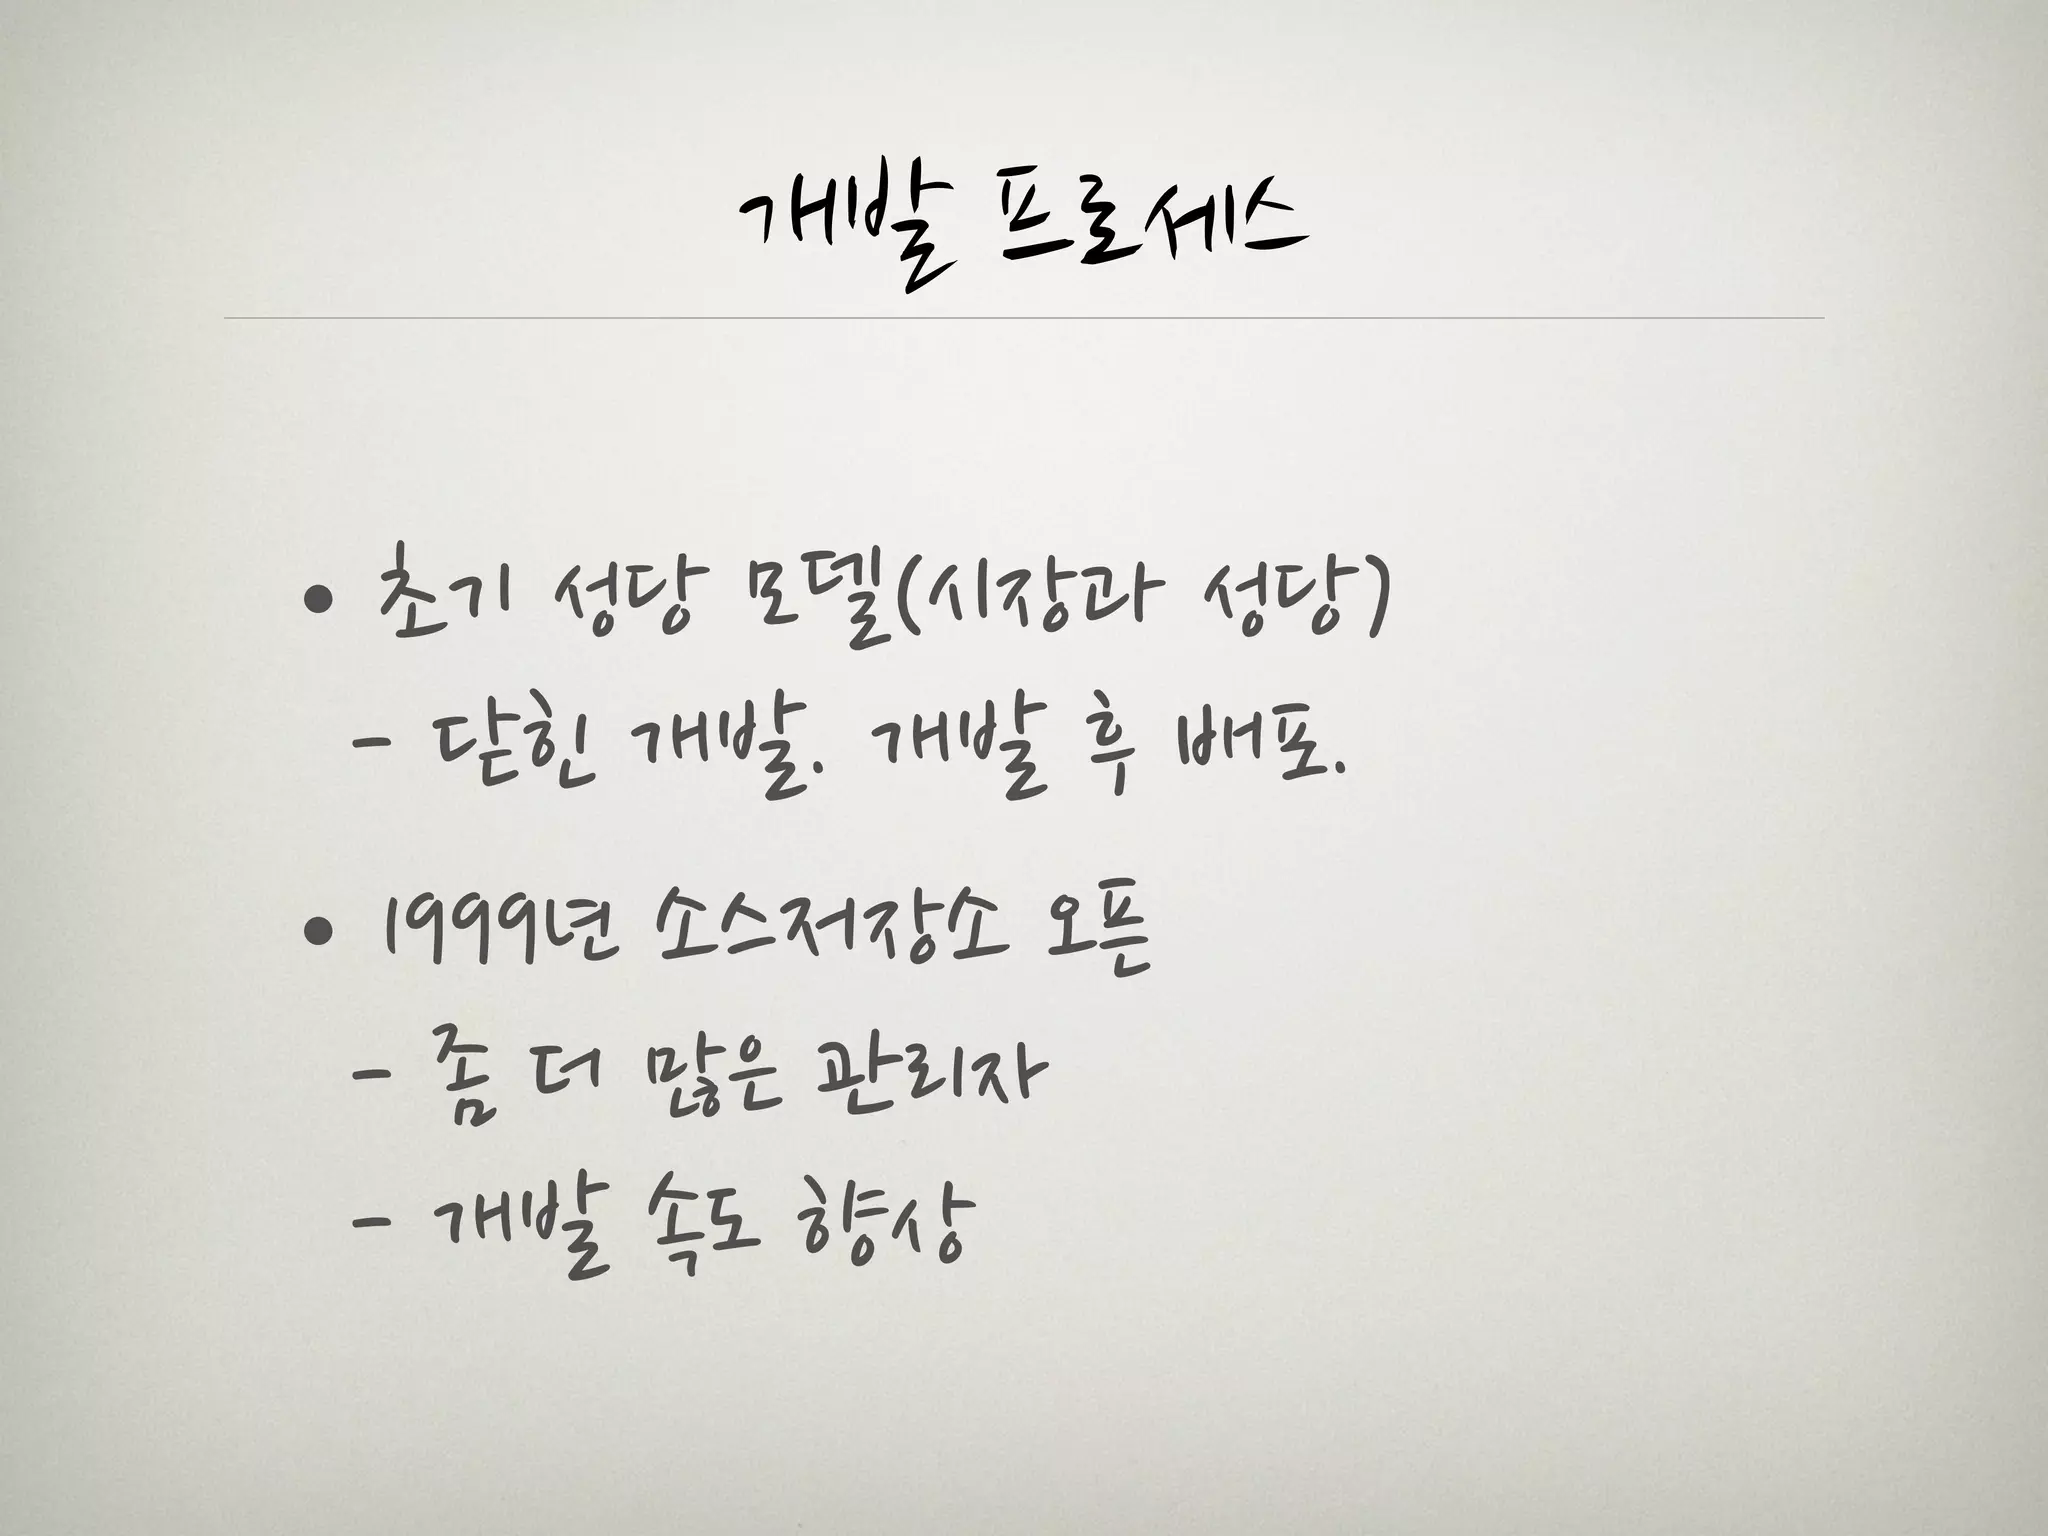 개발 프로세스
• 초기 성당 모델(시장과 성당)
- 닫힌 개발. 개발 후 배포.
• 1999년 소스저장소 오픈
- 좀 더 많은 관리자
- 개발 속도 향상